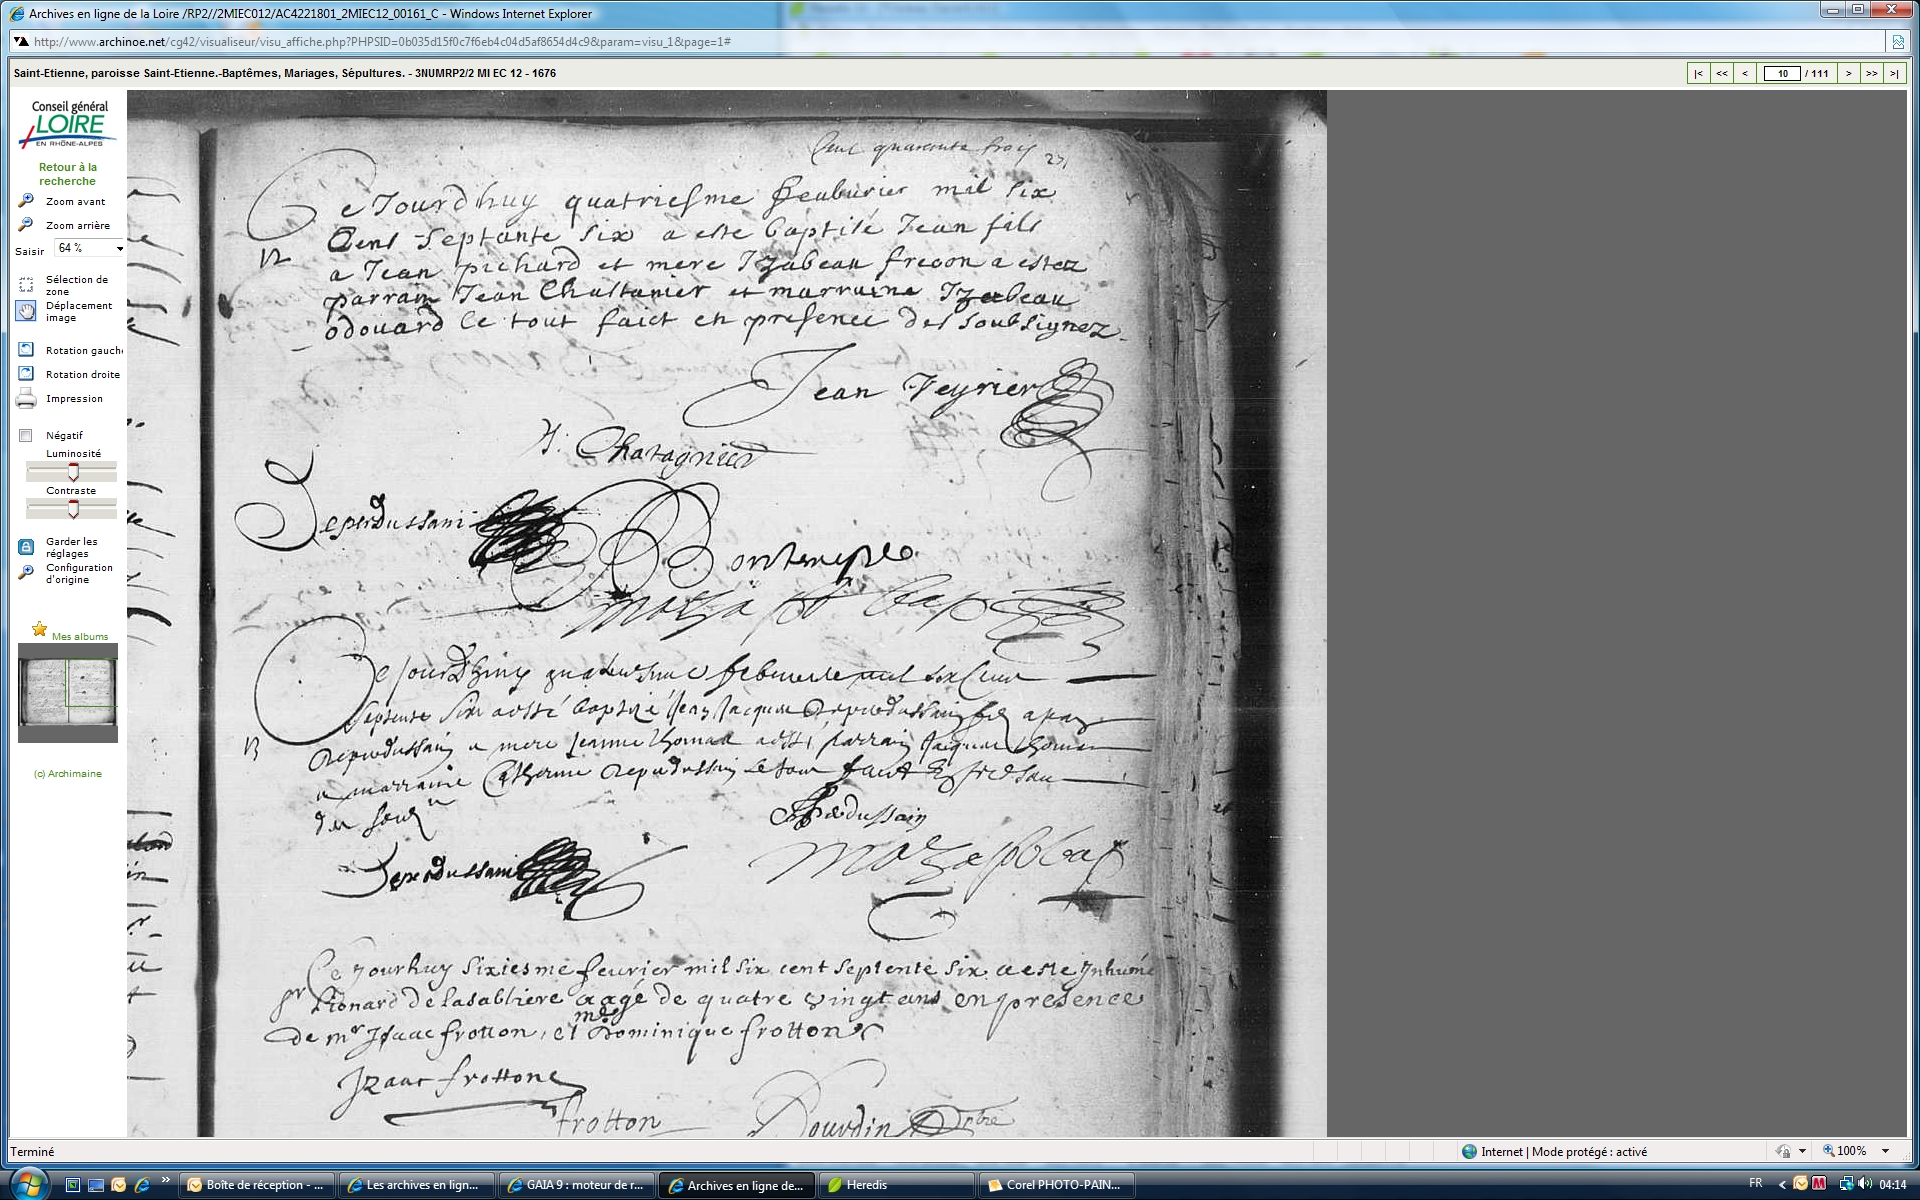 Archives en ligne de la Loire /RP2//2MIEC012/AC4221801_2MIEC12_00161_C - Windows Internet Explorer
http://www.archinoe.net/cg42/visualiseur/visu_affiche.php?PHPSID=0b035d15f0c7f6eb4c04d5af8654d4c9&param=visu_1&page=1#
Saint-Etienne, paroisse Saint-Etienne.-Baptêmes, Mariages, Sépultures. - 3NUMRP2/2 MI EC 12 - 1676
|< << < 10 / 111 > >> >|
Conseil général
LOIRE
EN RHÔNE-ALPES
Retour à la
recherche
Zoom avant
Zoom arrière
Saisir 64 %
Sélection de
zone
Déplacement
image
Rotation gauch
Rotation droite
Impression
Négatif
Luminosité
Contraste
Garder les
réglages
Configuration
d'origine
Mes albums
(c) Archimaine
Cent quarente trois
Ce Jourdhuy quatriesme feuburier mil six
Cens septante six a este baptisé Jean fils
12
a Jean pichard et mere Izabeau frecon a estez
parrain Jean Chastanier et marraine Izabeau
odouard le tout faict en presence des soubsignez
Jean Veyrier
Chatagnier
Deperdussani
Ce jourdhuy feburier mil six Cent
septente six a esté baptizé Jean Jacques Deperdussain fils a
13
Deperdussain a mere Jeanne thomas a esté parrain Jacques thomas
a marraine Catherine Deperdussain le tout faict En presance
des
Deperdussani
Ce Jourhuy sixiesme feurier mil six cent septente six a este Inhumé
sr Lionard de lasabliere aagé de quatre vingt ans en presence
de mr Isaac frotton, et Dominique frotton
Izaac frottone
frotton
Dourdin
Terminé
Internet | Mode protégé : activé
100%
Boîte de réception - ...
Les archives en lign...
GAIA 9 : moteur de r...
Archives en ligne de...
Heredis
Corel PHOTO-PAIN...
FR
04:14